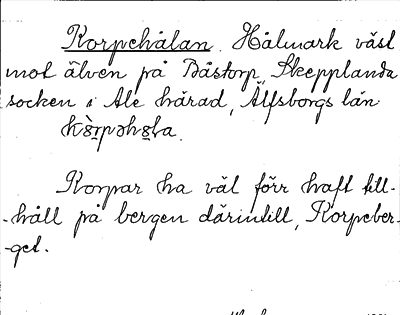 Korpehålan. Hålmark väst
mot älven på Båstorp, Skepplanda
socken i Ale härad, Älfsborgs län
Korpar ha väl förr haft till-
-håll på bergen därintill, Korpeber-
-get.